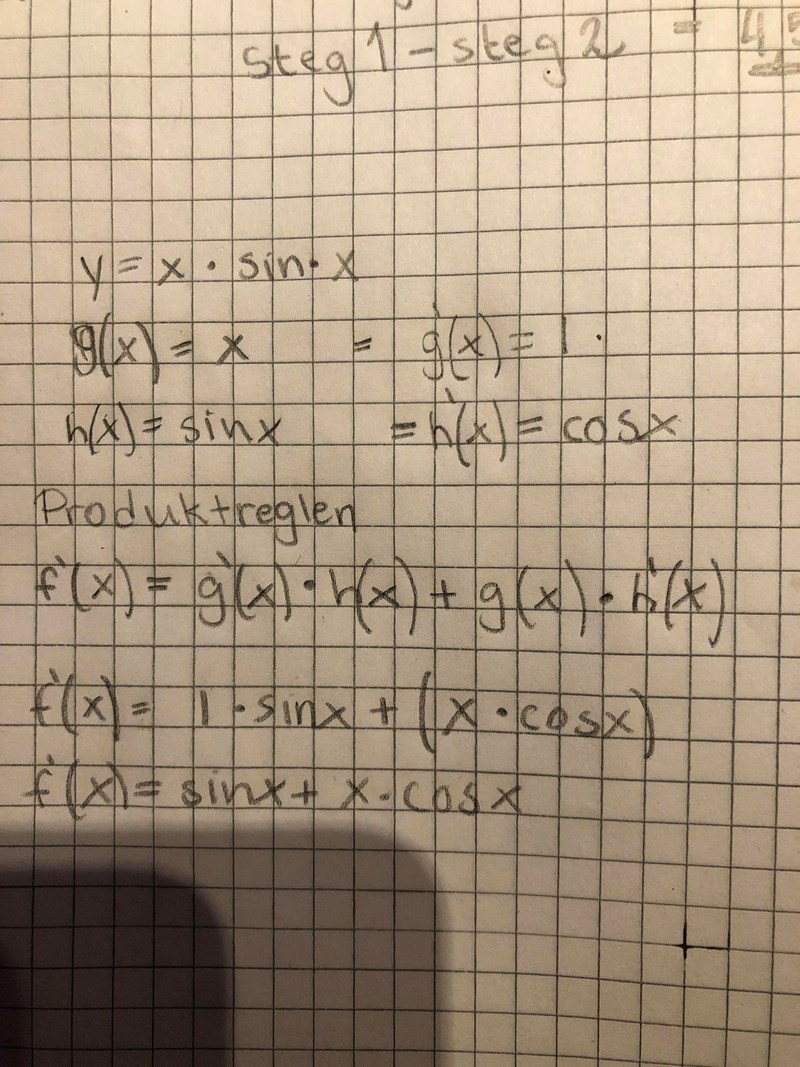 steg 1 - steg 2 = 4,5
y = x · sin · x
g(x) = x = g'(x) = 1 ·
h(x) = sinx = h'(x) = cosx
Produktreglen
f'(x) = g'(x) · h(x) + g(x) · h'(x)
f'(x) = 1 · sinx + (x · cosx)
f'(x) = sinx + x · cosx